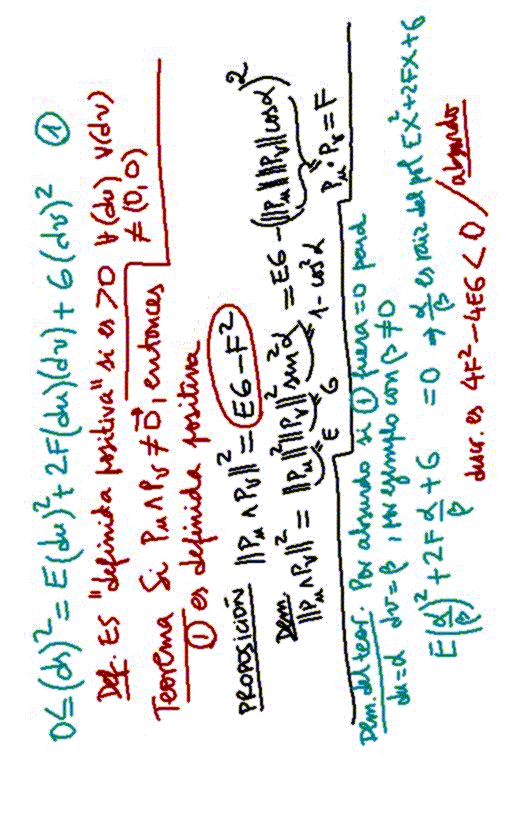 0≤(ds)² = E(du)²+2F(du)(dv)+G(dv)² ①
Def. Es "definida positiva" si es >0 ∀(du) ∀(dv)
≠(0,0)
Teorema Si Pu∧Pv≠0⃗, entonces
① es definida positiva
PROPOSICIÓN ||Pu∧Pv||² = EG-F²
Dem.
||Pu∧Pv||² = ||Pu||²||Pv||² sin²α = EG-(||Pu||||Pv||cosα)²
E G 1-cos²α Pu·Pv=F
Dem. del teor. Por absurdo si ① fuera=0 para
du=α dv=β, por ejemplo con β≠0
E(α/β)²+2F α/β+G =0 ⇒ α/β es raiz del pol EX²+2FX+G
discr. es 4F²-4EG<0 / absurdo